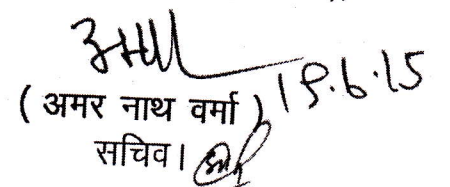 अमर
( अमर नाथ वर्मा ) 19.6.15
सचिव।